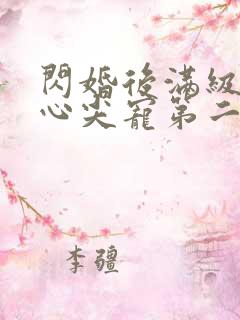 閃婚後滿級
心尖寵第二
李疆